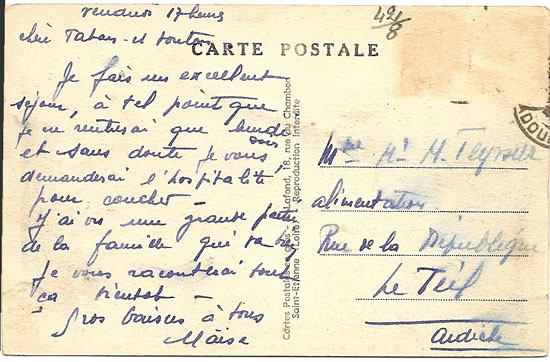 vendredi 17 heures
chère Tatan et toutes
CARTE POSTALE
42/8
Je fais un excellent
séjour, à tel point que
je ne rentrerai que lundi
soir
et sans doute je vous
demanderai l'hospitalité
pour coucher -
J'ai vu une grande partie
de la famille qui va bien
Je vous raconterai tout
ça bientôt -
Gros baisers à tous
Maïse
Cartes Postales en Gros - Lafond, 18, rue du Chambon
Saint-Etienne (Loire) Reproduction Interdite
Mme M. Teyssier
alimentation
Rue de la République
Le Teil
Ardèche
ADOU